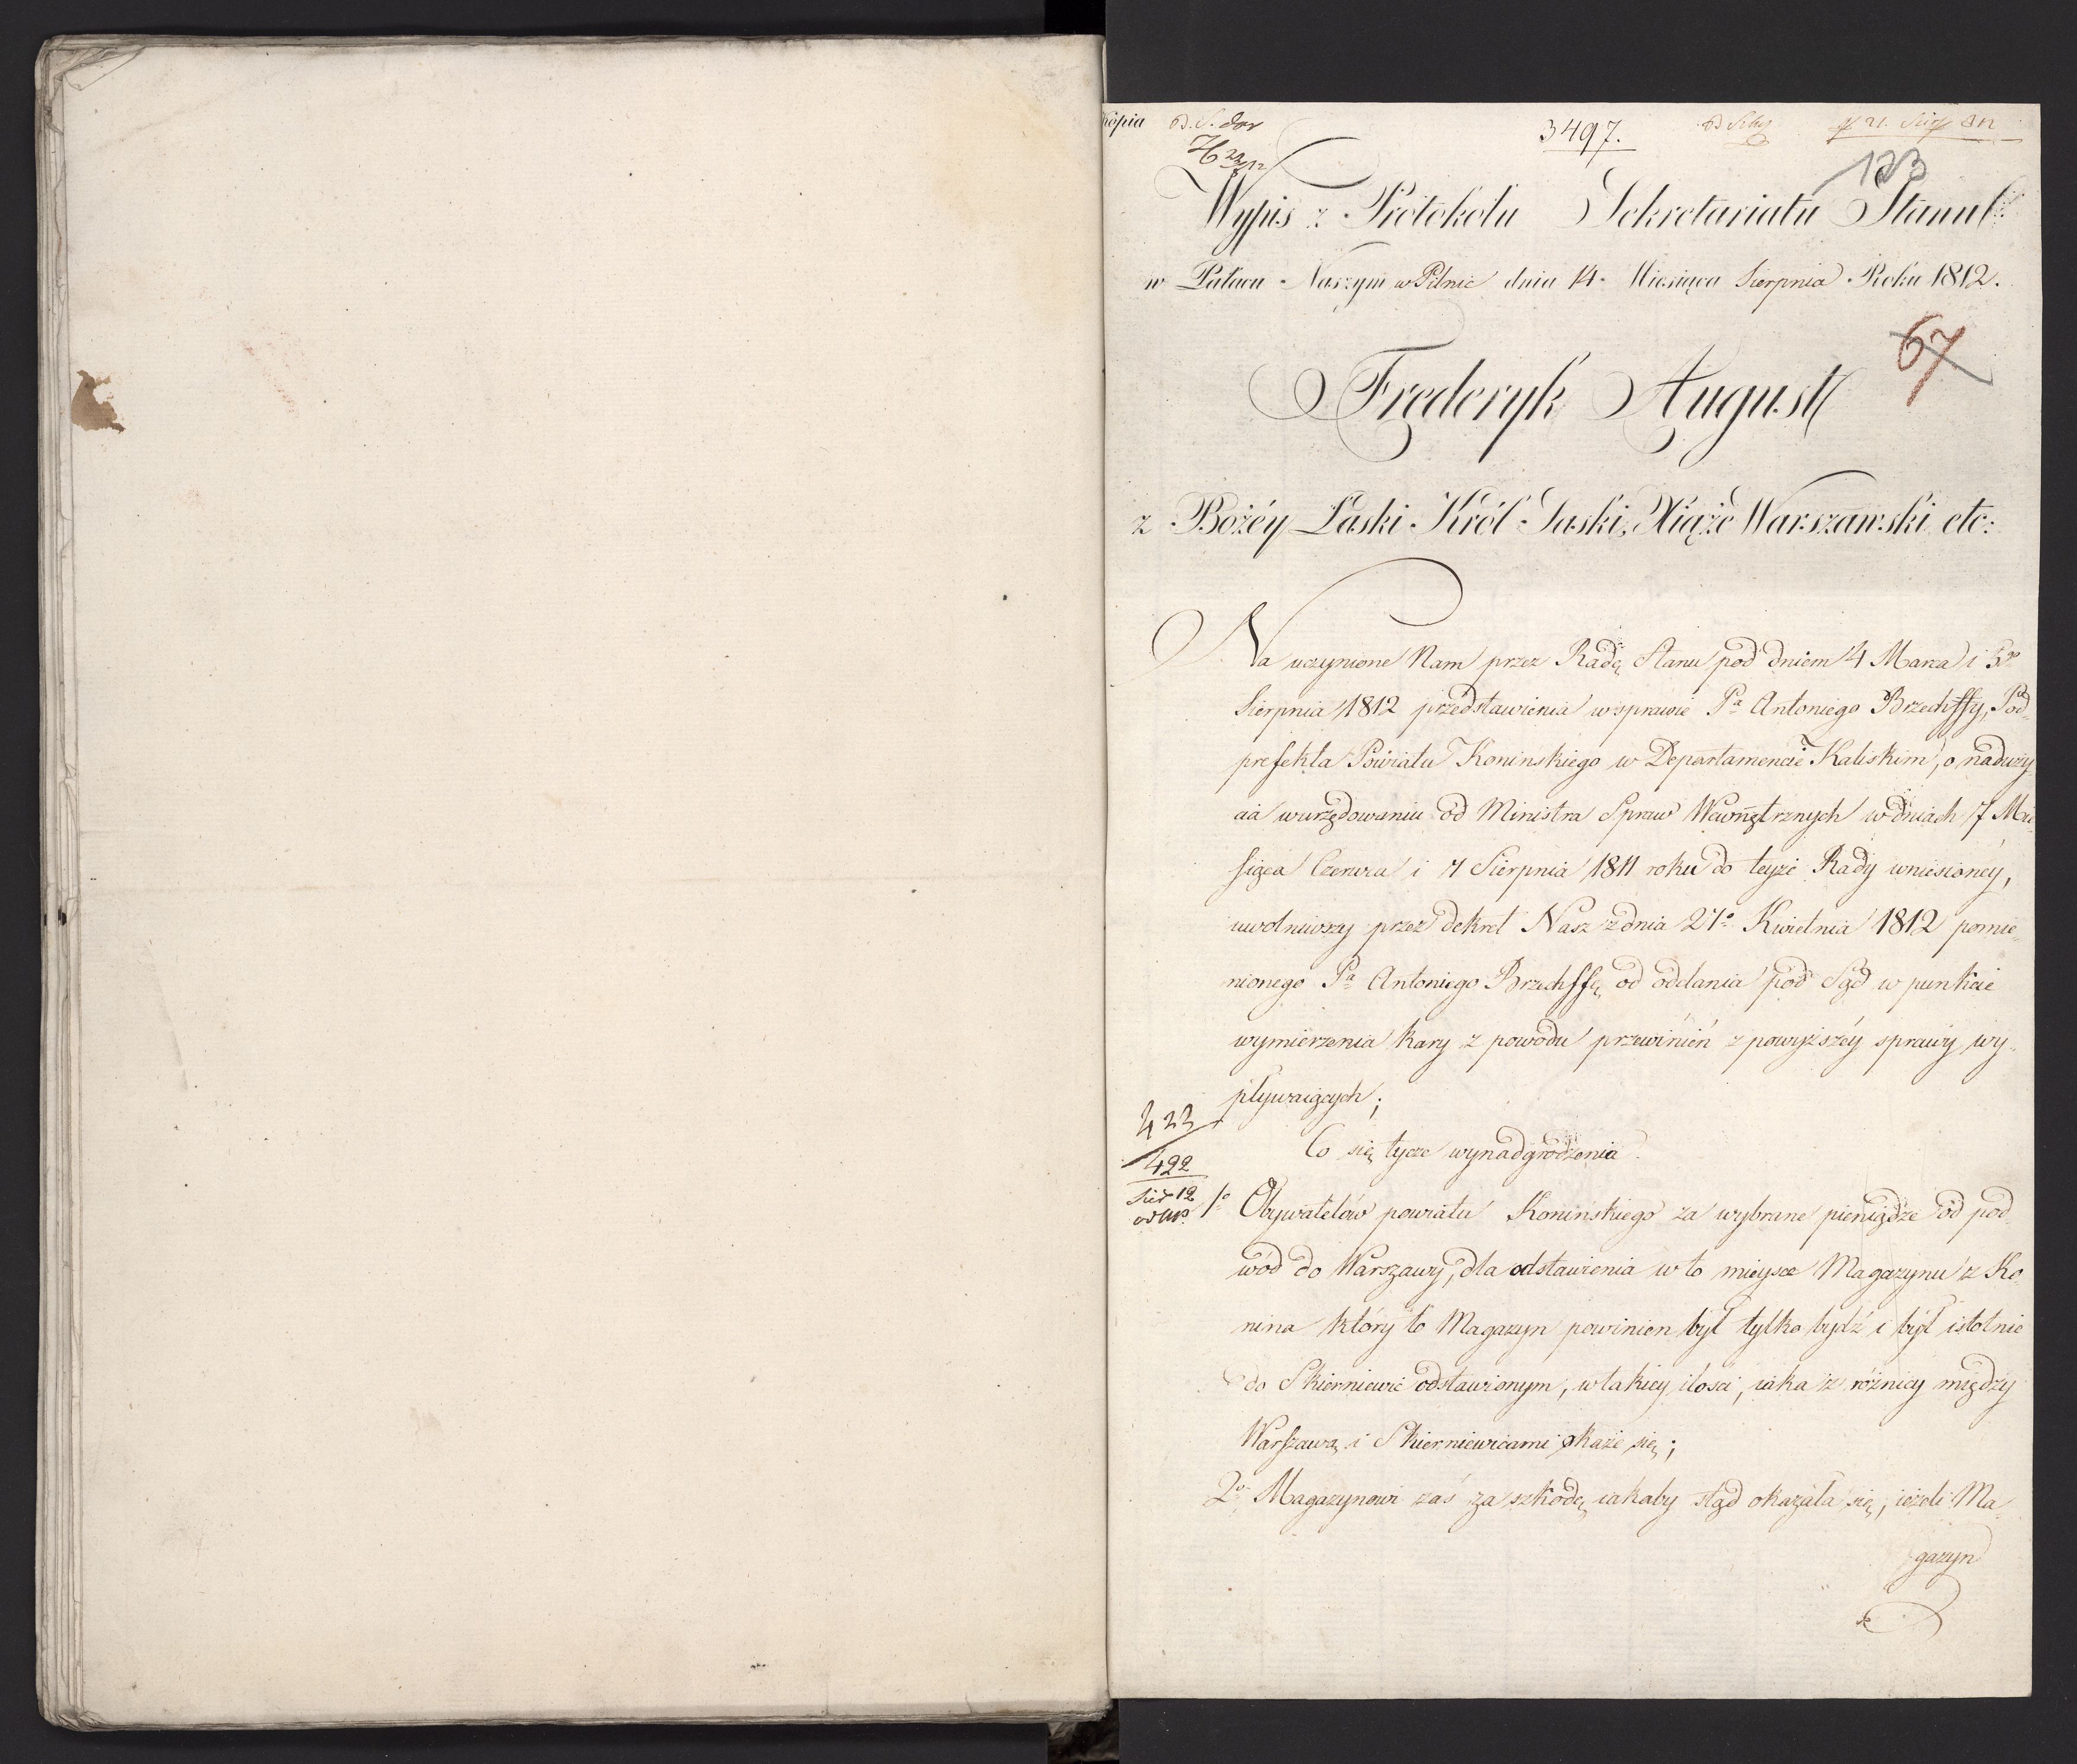 Kopia
3497.
133
Wypis z Protokołu Sekretariatu Stanu
w Pałacu Naszym w Pilnic dnia 14. Miesiąca Sierpnia Roku 1812.
67
Frederyk August
z Bożéy Łaski Król Saski, Xiąże Warszawski etc:
Na uczynione Nam przez Radę Stanu pod dniem 4 Marca i 5go
Sierpnia 1812 przedstawienia w sprawie Pa Antoniego Brzechffy, Pod
prefekta Powiatu Koninskiego w Departamencie Kaliskim, o naduży
cia w urzędowaniu od Ministra Spraw Wewnętrznych w dniach 7 Mie
siąca Czerwca i 7 Sierpnia 1811 roku do teyże Rady wniesionéy,
uwolniwszy przez dekret Nasz z dnia 27o Kwietnia 1812 pomie
nionego Pa Antoniego Brzechffę od oddania pod Sąd w punkcie
wymierzenia kary z powodu przewinień z powyższéy sprawy wy
pływaiących;
Co się tycze wynadgrodzenia
422
1o Obywatelów powiatu Koninskiego za wybrane pieniądze od pod
wód do Warszawy, dla odstawienia w to mieysce Magazynu z Ko
nina który to Magazyn powinien był tylko bydź i był istotnie
do Skierniewic odstawionym, w takiey ilosci, iaka z różnicy między
Warszawą i Skierniewicami okaże się;
2o Magazynowi zaś za szkodę iakaby stąd okazała się, ieżeli Ma
gazyn